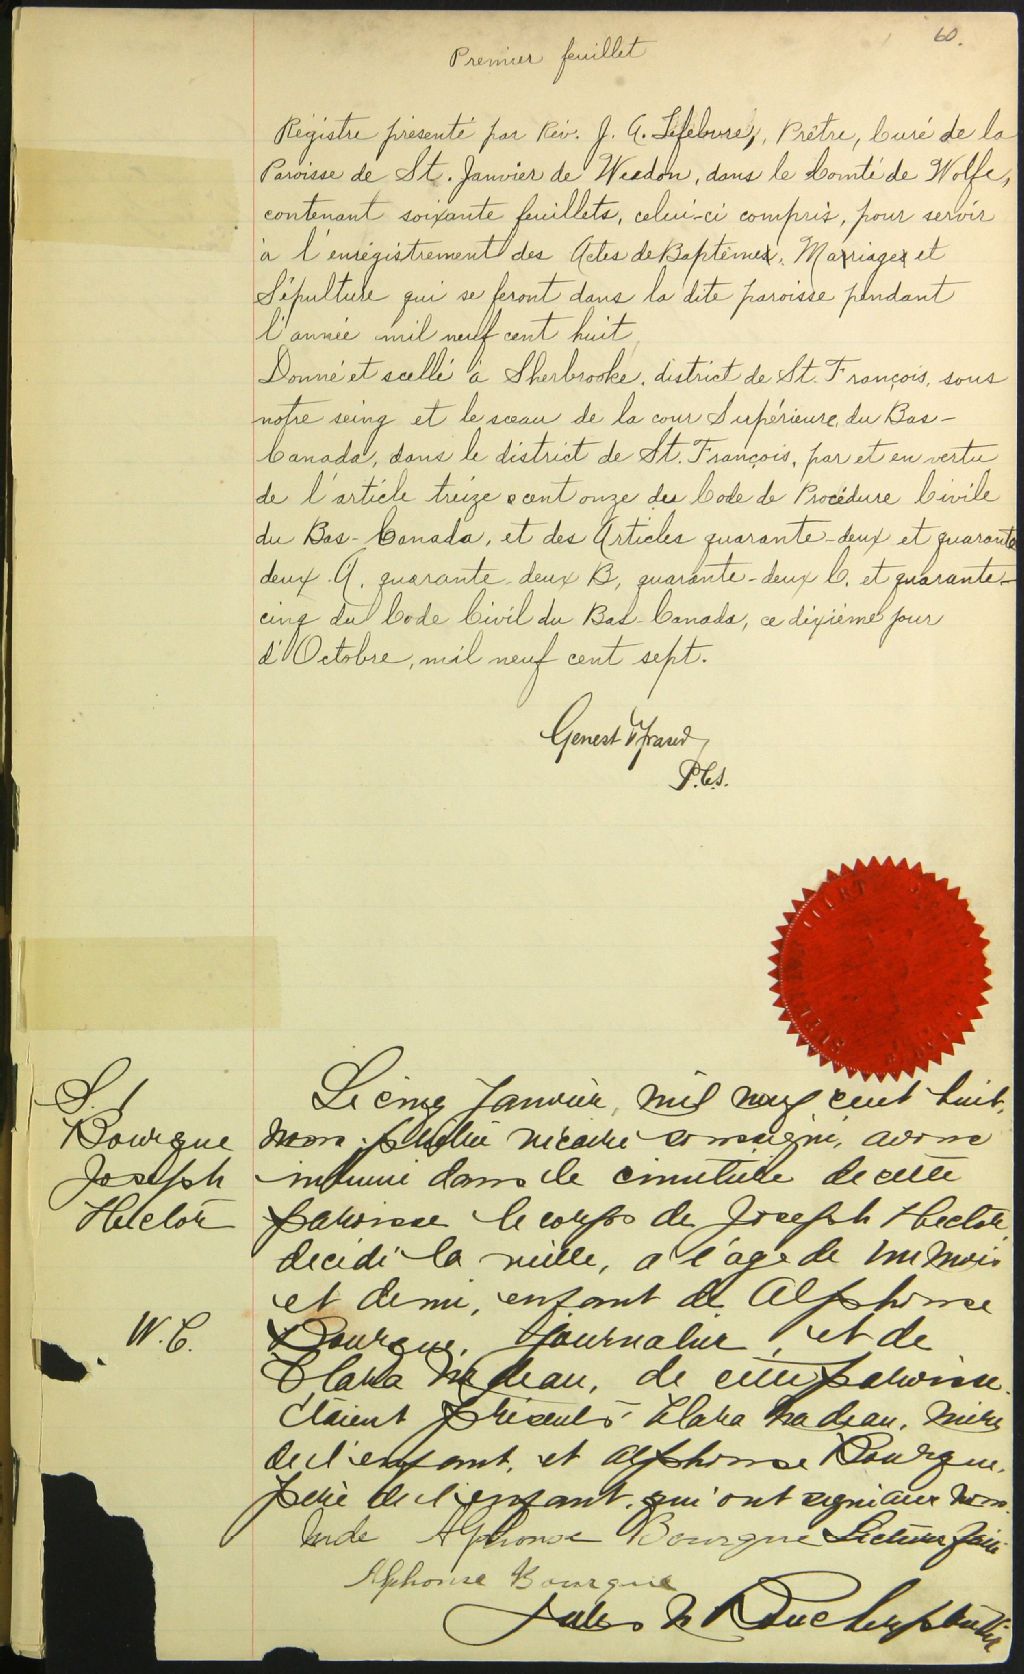 60.
Premier feuillet
Régistre présenté par Rév. J. A. Lefebvre, Prêtre, Curé de la
Paroisse de St. Janvier de Weedon, dans le Comté de Wolfe,
contenant soixante feuillets, celui-ci compris, pour servir
à l'enrégistrement des Actes de Baptêmes, Mariages et
Sépulture qui se feront dans la dite paroisse pendant
l'année mil neuf cent huit
Donné et scellé à Sherbrooke, district de St. François, sous
notre seing et le sceau de la cour Supérieure, du Bas-
Canada, dans le district de St. François, par et en vertu
de l'article treize cent onze du Code de Procédure Civile
du Bas-Canada, et des Articles quarante-deux et quarante
deux A. quarante-deux B, quarante-deux C. et quarante-
cinq du Code Civil du Bas-Canada, ce dixième jour
d'Octobre, mil neuf cent sept.
Genest & Fraser
P.C.S.
S. 1
Bourque
Joseph
Hector
W. C.
Le cinq Janvier, mil neuf cent huit,
nous, prêtre vicaire soussigné, avons
inhumé dans le cimetière de cette
paroisse le corps de Joseph Hector
décédé la veille, a l'âge de un mois
et demi, enfant de Alphonse
Bourque, journalier, et de
Clara Nadeau, de cette paroisse.
Étaient présents Clara Nadeau, mère
de l'enfant, et Alphonse Bourque,
père de l'enfant, qui ont signé avec nous.
Alphonse Bourque Lecture faite
Alphonse Bourque
Jules N